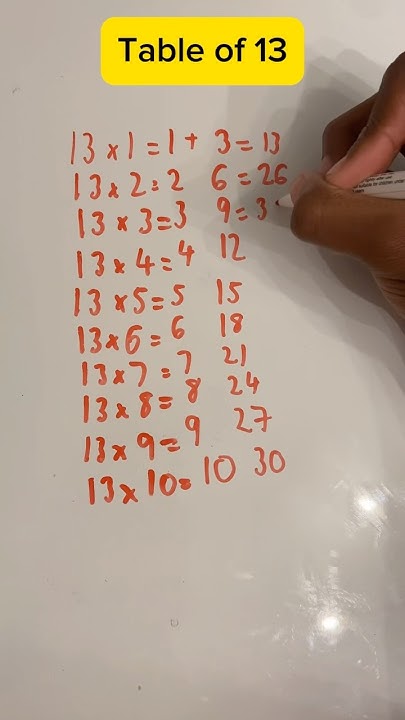 Table of 13
13 × 1 = 1 + 3 = 13
13 × 2 = 2 6 = 26
13 × 3 = 3 9 = 3
13 × 4 = 4 12
13 × 5 = 5 15
13 × 6 = 6 18
13 × 7 = 7 21
13 × 8 = 8 24
13 × 9 = 9 27
13 × 10 = 10 30